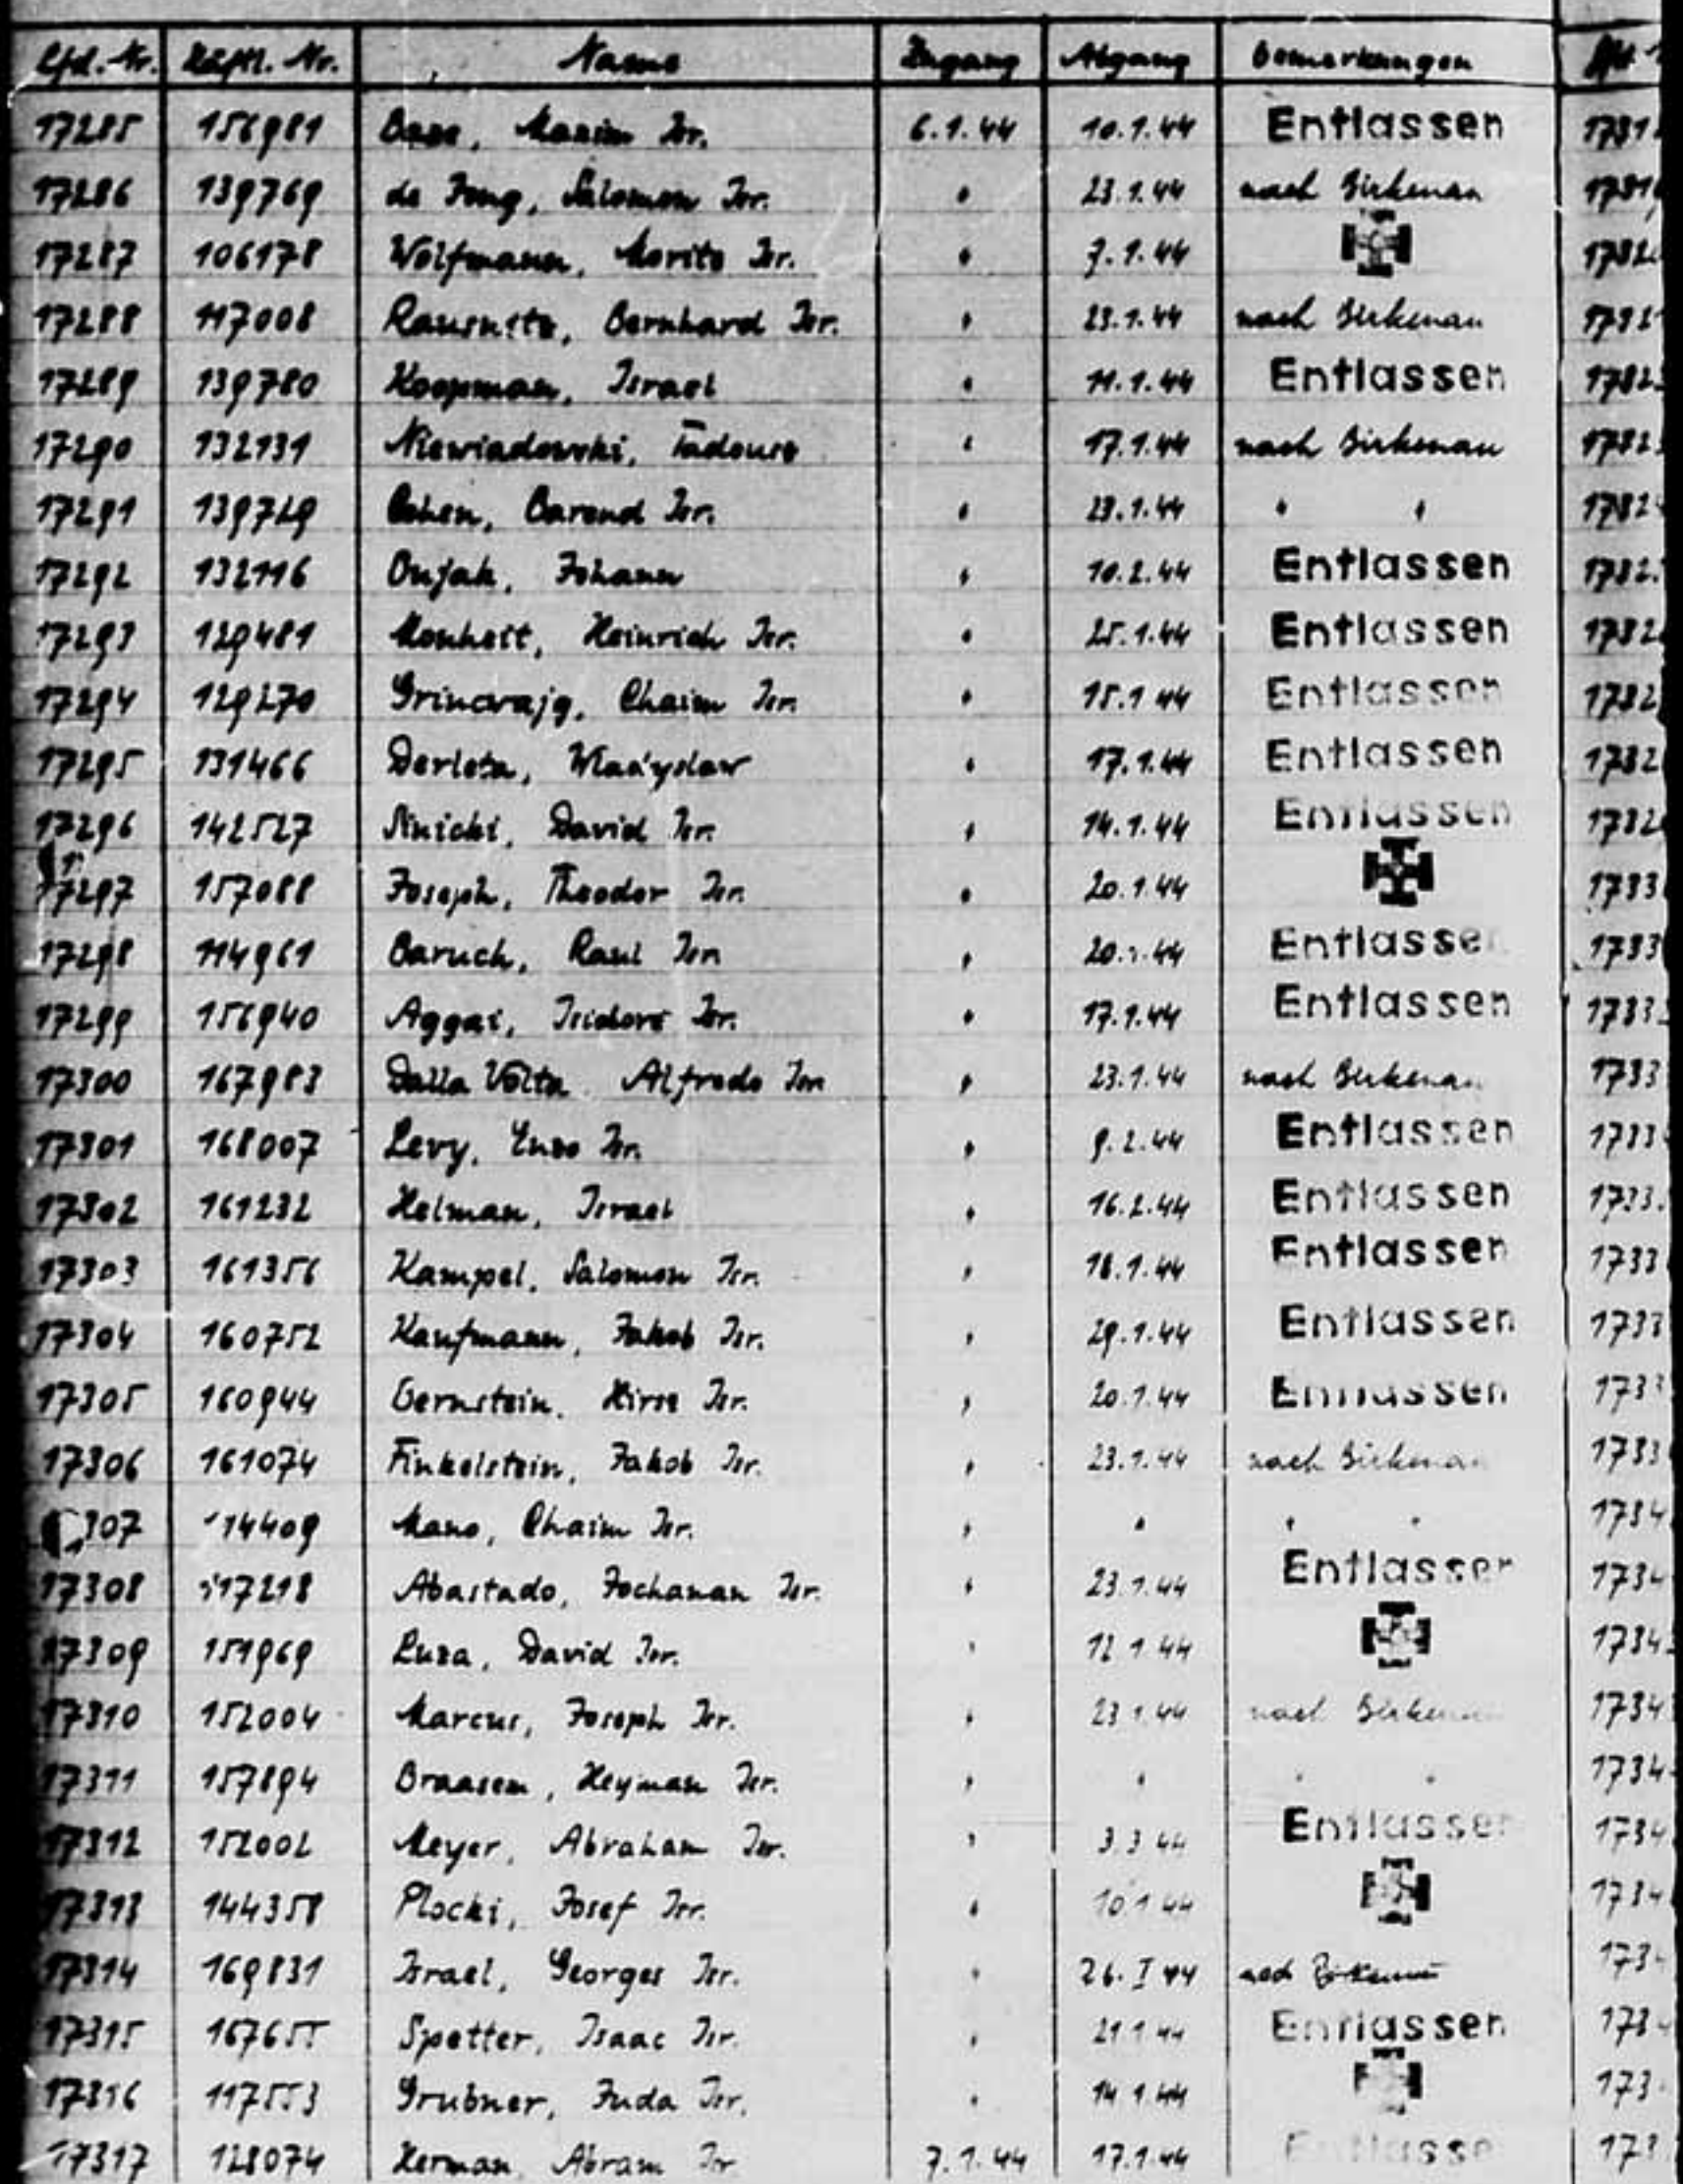 Lfd. Nr. Häftl. Nr. Name Zugang Abgang Bemerkungen Lfd.
17285 156981 Maxim Isr. 6.1.44 10.1.44 Entlassen
17286 139769 de Jong, Salomon Isr. " 23.1.44 nach Birkenau
17287 106178 Wolfmann, Moritz Isr. " 7.1.44
17288 117008 Bernhard Isr. " 23.1.44 nach Birkenau
17289 139780 Koopman, Israel " 11.1.44 Entlassen
17290 132131 Niewiadowski, Tadeusz " 17.1.44 nach Birkenau
17291 139729 Cohen, Barend Isr. " 23.1.44 " "
17292 132116 Johann " 10.2.44 Entlassen
17293 129481 Monheit, Heinrich Isr. " 25.1.44 Entlassen
17294 129270 Grincvajg, Chaim Isr. " 15.1.44 Entlassen
17295 131466 Derleta, Władysław " 17.1.44 Entlassen
17296 142527 David Isr. " 14.1.44 Entlassen
17297 157088 Joseph, Theodor Isr. " 20.1.44
17298 114961 Baruch, Raul Isr. " 20.1.44 Entlassen
17299 156940 Aggai, Isidore Isr. " 17.1.44 Entlassen
17300 167983 Dalla Volta Alfredo Isr. " 23.1.44 nach Birkenau
17301 168007 Levy, Enzo Isr. " 9.2.44 Entlassen
17302 161232 Helman, Israel " 16.2.44 Entlassen
17303 161356 Kampel, Salomon Isr. " 18.1.44 Entlassen
17304 160752 Kaufmann, Jakob Isr. " 29.1.44 Entlassen
17305 160944 Bernstein, Isr. " 20.1.44 Entlassen
17306 161074 Finkelstein, Jakob Isr. " 23.1.44 nach Birkenau
307 14409 Mano, Chaim Isr. " " " "
17308 117218 Abastado, Jochanan Isr. " 23.1.44 Entlassen
17309 151969 David Isr. " 12.1.44
17310 152004 Marcus, Joseph Isr. " 23.1.44 nach Birkenau
17311 157894 Braasem, Heyman Isr. " " " "
17312 152002 Meyer, Abraham Isr. " 3.3.44 Entlassen
17313 144358 Plocki, Josef Isr. " 10.1.44
17314 169831 Israel, Georges Isr. " 26. I 44 nach Birkenau
17315 167655 Spetter, Isaac Isr. " 21.1.44 Entlassen
17316 117553 Grubner, Juda Isr. " 14.1.44
17317 128074 Herman, Abram Isr 7.1.44 17.1.44 Entlassen